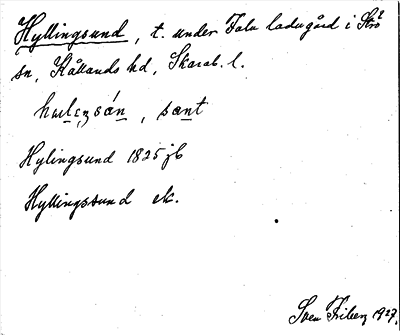 Hyllingsund, t. under Tolu ladugård i Strö
sn, Kållands hd, Skarab. l.
, sant
Hylingsund 1825 jb
Hyllingssund ek.
Sven Friberg 1927.